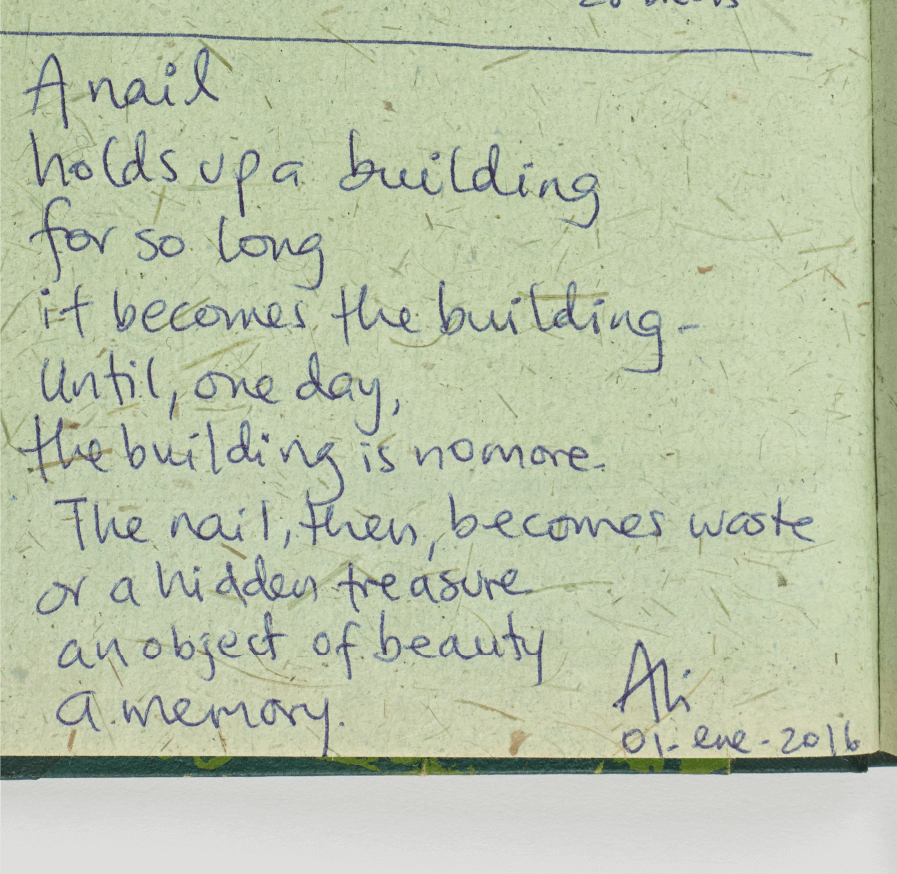 A nail
holds up a building
for so long
it becomes the building-
Until, one day,
the building is no more.
The nail, then, becomes waste
or a hidden treasure
an object of beauty
a memory.
Ali
01-ene-2016